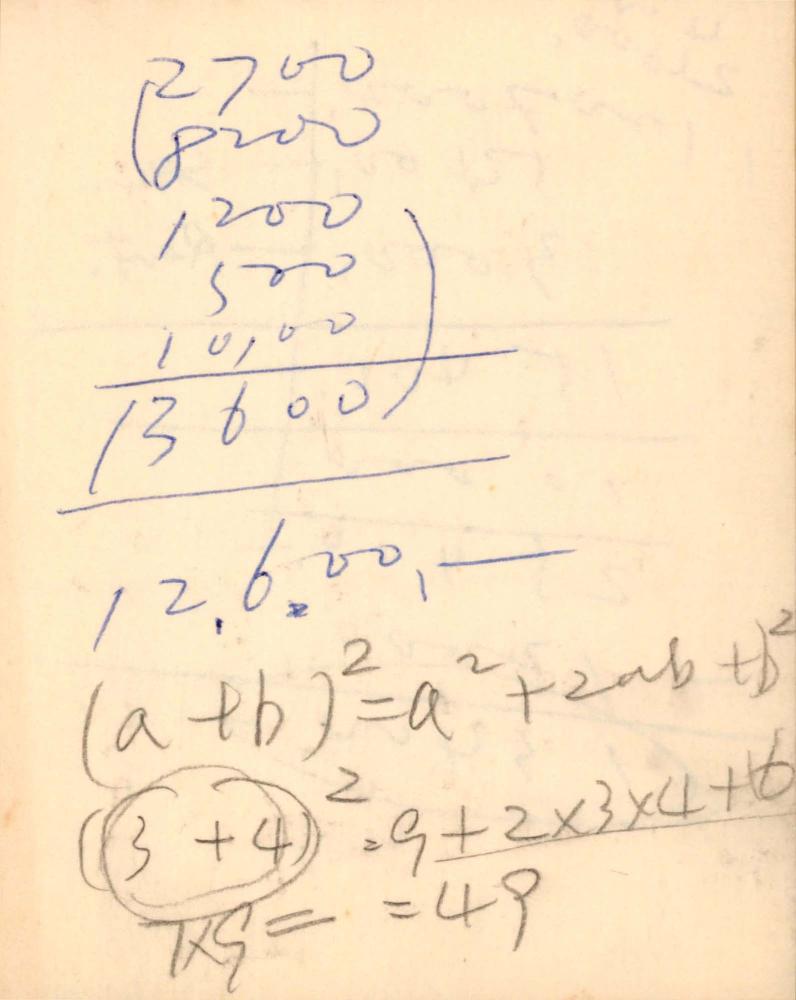 (2700
8200
1200
500
10,00)
13600
12.600,—
(a+b)²=a²+2ab+b²
(3+4)²=9+2×3×4+16
7×9= =49